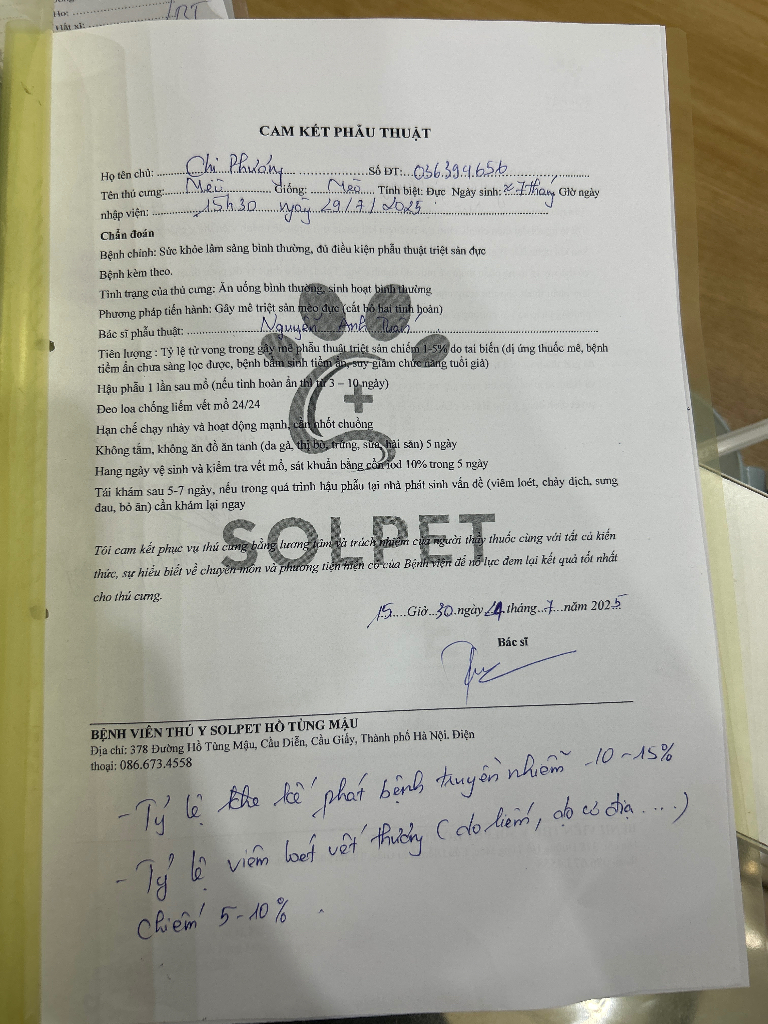 Họ:
LRT
Hát xì:
CAM KẾT PHẪU THUẬT
Họ tên chủ: Chị Phương Số ĐT: 036.399.656
Tên thú cưng: Mều Giống: Mèo Tính biệt: Đực Ngày sinh: ≈ 7 tháng Giờ ngày
nhập viện: 15h30 ngày 29/7/2025
Chẩn đoán
Bệnh chính: Sức khỏe lâm sàng bình thường, đủ điều kiện phẫu thuật triệt sản đực
Bệnh kèm theo.
Tình trạng của thú cưng: Ăn uống bình thường, sinh hoạt bình thường
Phương pháp tiến hành: Gây mê triệt sản mèo đực (cắt bỏ hai tinh hoàn)
Bác sĩ phẫu thuật: Nguyễn Anh Tuấn
Tiên lượng : Tỷ lệ tử vong trong gây mê phẫu thuật triệt sản chiếm 1-5% do tai biến (dị ứng thuốc mê, bệnh
tiềm ẩn chưa sàng lọc được, bệnh bẩm sinh tiềm ẩn, suy giảm chức năng tuổi già)
Hậu phẫu 1 lần sau mổ (nếu tinh hoàn ẩn thì từ 3 – 10 ngày)
Đeo loa chống liếm vết mổ 24/24
Hạn chế chạy nhảy và hoạt động mạnh, cần nhốt chuồng
Không tắm, không ăn đồ ăn tanh (da gà, thị bò, trứng, sữa, hải sản) 5 ngày
Hang ngày vệ sinh và kiểm tra vết mổ, sát khuẩn bằng cồn iod 10% trong 5 ngày
Tái khám sau 5-7 ngày, nếu trong quá trình hậu phẫu tại nhà phát sinh vấn đề (viêm loét, chảy dịch, sưng
đau, bỏ ăn) cần khám lại ngay
SOLPET
Tôi cam kết phục vụ thú cưng bằng lương tâm và trách nhiệm của người thầy thuốc cùng với tất cả kiến
thức, sự hiểu biết về chuyên môn và phương tiện hiện có của Bệnh viện để nỗ lực đem lại kết quả tốt nhất
cho thú cưng.
15 Giờ 30 ngày 29 tháng 7 năm 2025
Bác sĩ
BỆNH VIÊN THÚ Y SOLPET HỒ TÙNG MẬU
Địa chỉ: 378 Đường Hồ Tùng Mậu, Cầu Diễn, Cầu Giấy, Thành phố Hà Nội. Điện
thoại: 086.673.4558
- Tỷ lệ kế phát bệnh truyền nhiễm 10 - 15%
- Tỷ lệ viêm loét vết thương (do liếm, do cơ địa ....)
chiếm 5 - 10%